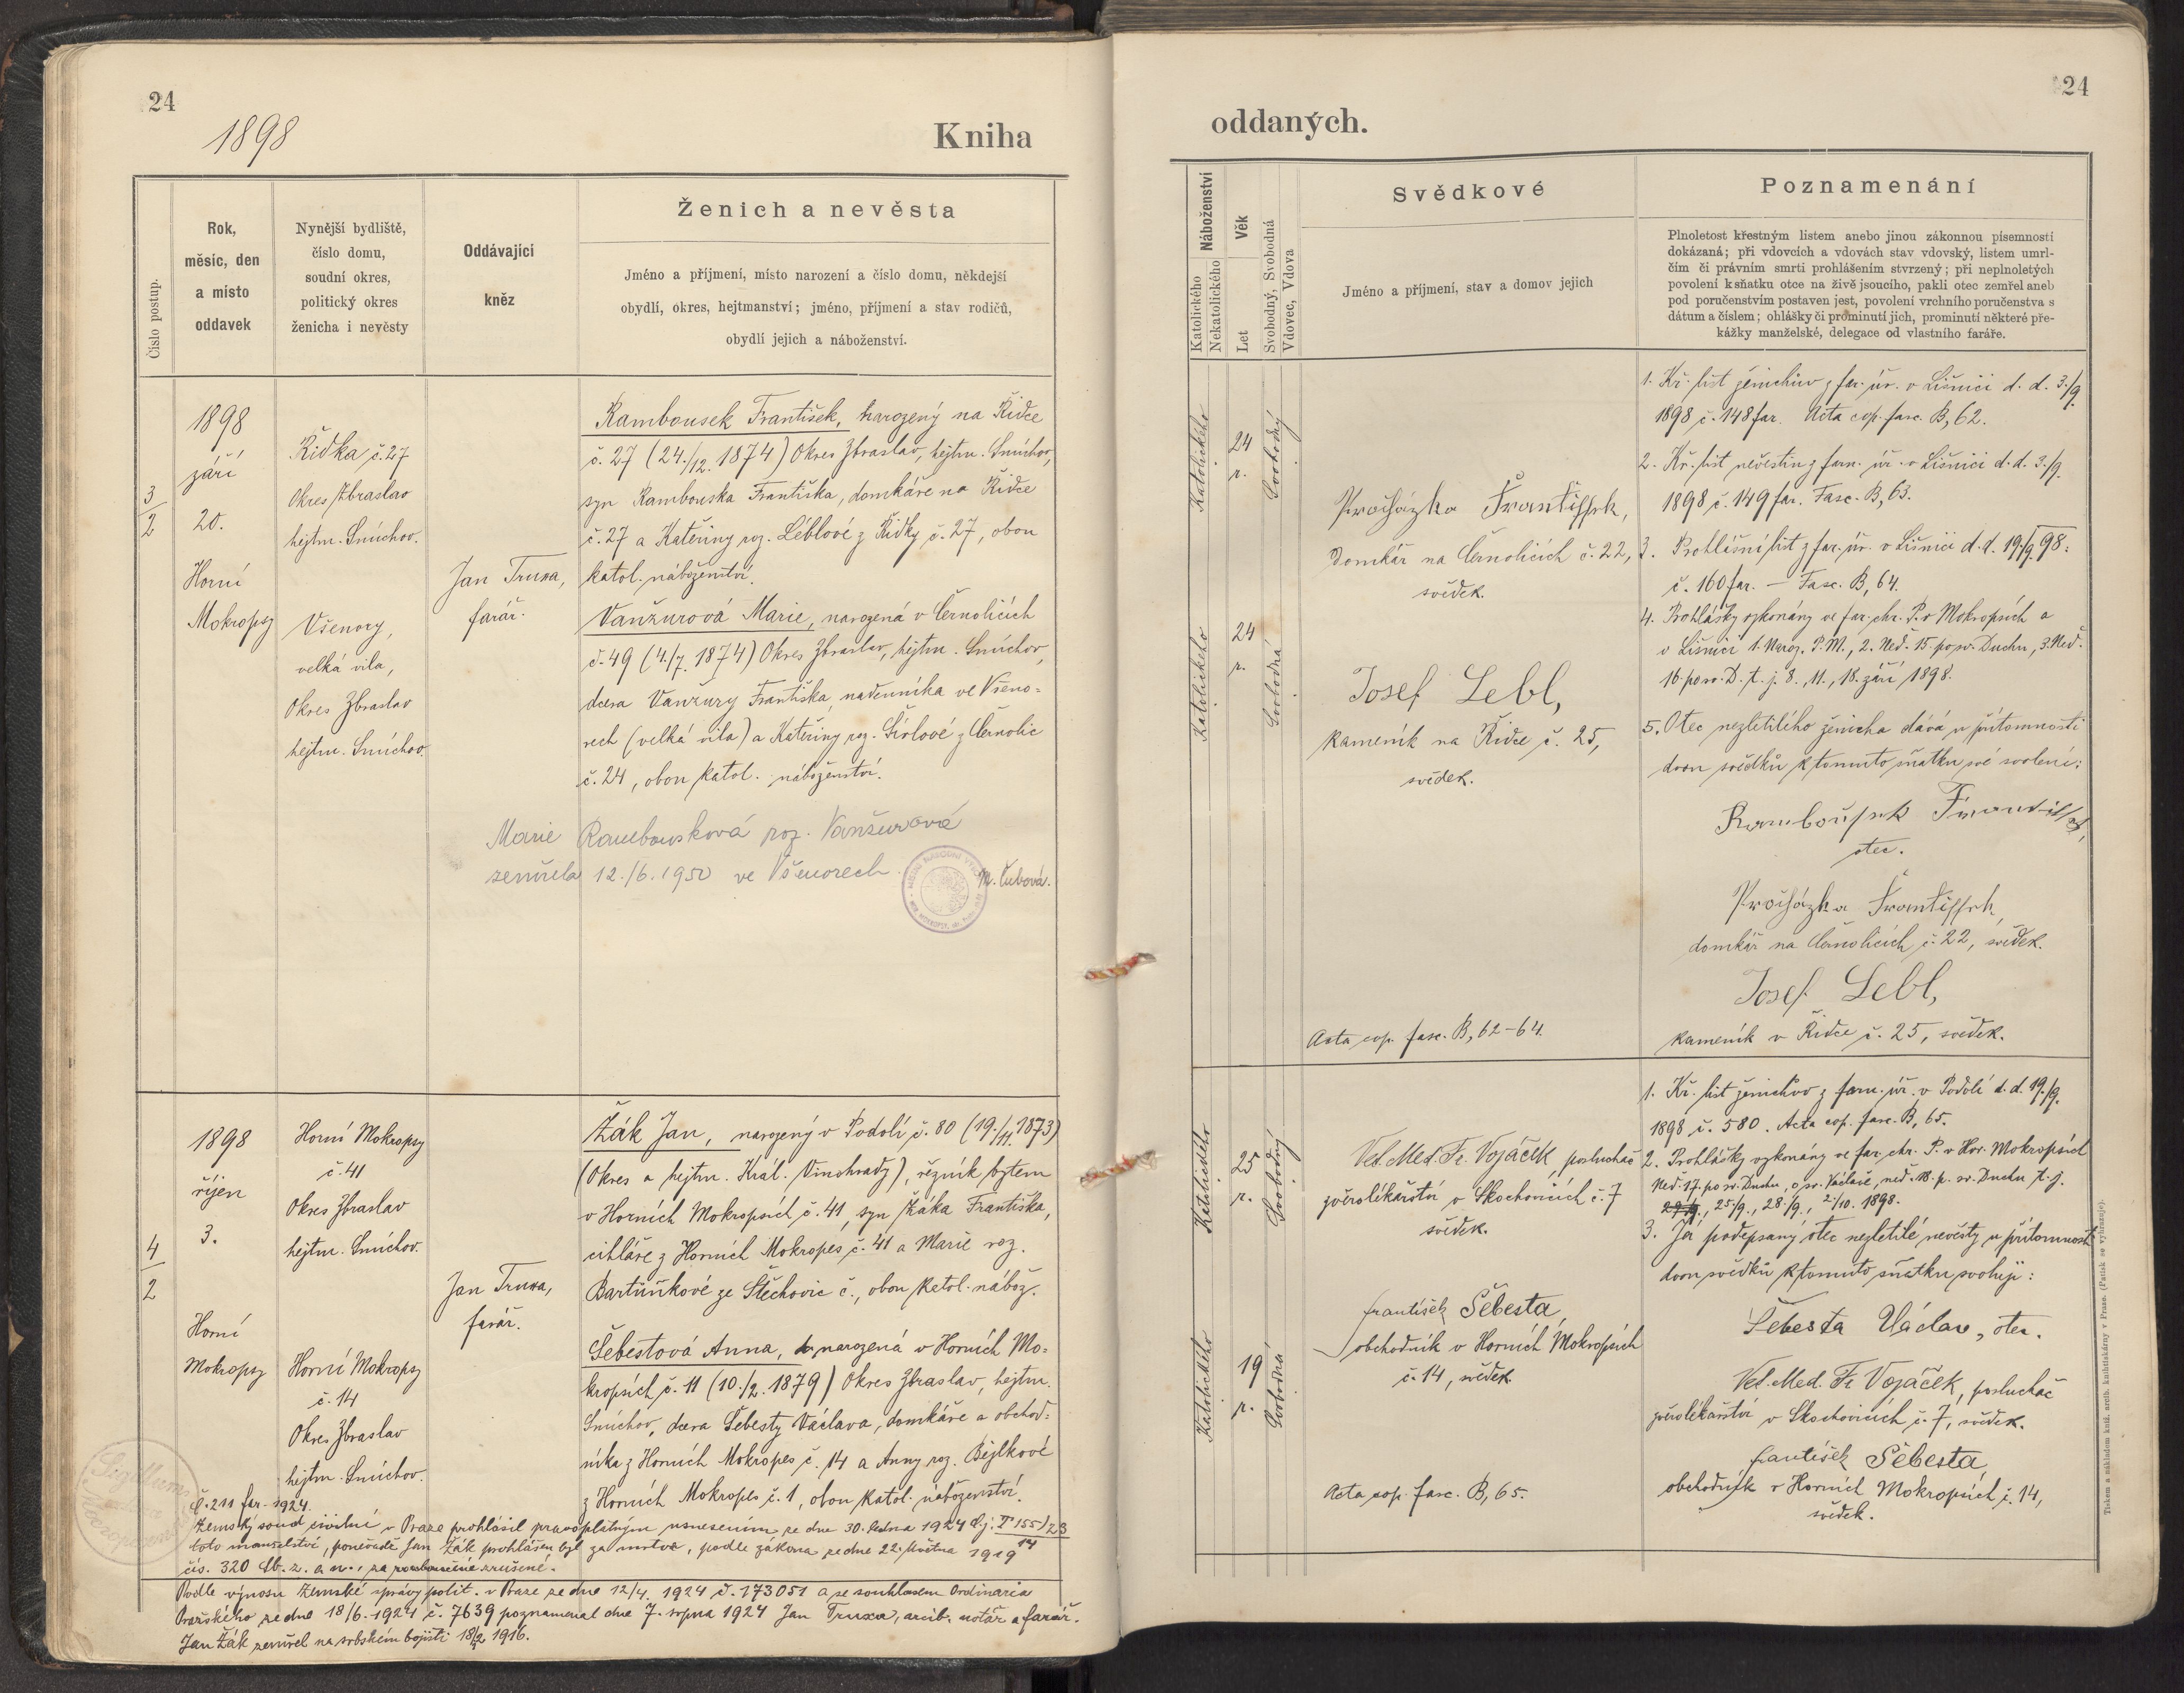 24
1898
Kniha
Číslo postup.
Rok,
měsíc, den
a místo
oddavek
Nynější bydliště,
číslo domu,
soudní okres,
politický okres
ženicha i nevěsty
Oddávající
kněz
Ženich a nevěsta
Jméno a příjmení, místo narození a číslo domu, někdejší
obydlí, okres, hejtmanství; jméno, příjmení a stav rodičů,
obydlí jejich a náboženství.
3/2
1898
září
20.
Horní
Mokropsy
Řidka č. 27
Okres Zbraslav
hejtm. Smíchov.
Všenory,
velká vila,
Okres Zbraslav
hejtm. Smíchov.
Jan Truxa,
farář.
Rambousek František, narozený na Řidce
č. 27 (24./12. 1874) Okres Zbraslav, hejtm. Smíchov,
syn Rambouska Františka, domkáře na Řidce
č. 27 a Kateřiny roz. Léblové z Řidky č. 27, obou
katol. náboženství.
Vanžurová Marie, narozená v Černolicích
č. 49 (4./7. 1874) Okres Zbraslav, hejtm. Smíchov,
dcera Vanžury Františka, nádenníka ve Všeno-
rech (velká vila) a Kateřiny roz. z Černolic
č. 24, obou katol. náboženství.
Marie Rambousková roz. Vanžurová
zemřela 12./6. 1950 ve Všenorech.
M. Čubová.
4/2
1898
říjen
3.
Horní
Mokropsy
Horní Mokropsy
č. 41
Okres Zbraslav
hejtm. Smíchov.
Horní Mokropsy
č. 14
Okres Zbraslav
hejtm. Smíchov.
Jan Truxa,
farář.
Žák Jan, narozený v Podolí č. 80 (19./11. 1873)
(Okres a hejtm. Král. Vinohrady), řezník bytem
v Horních Mokropsích č. 41, syn Žáka Františka,
cihláře z Horních Mokropes č. 41 a Marie roz.
Bartůňkové ze Štěchovic č., obou katol. nábož.
Šebestová Anna, narozená v Horních Mo-
kropsích č. 11 (10./2. 1879) Okres Zbraslav, hejtm.
Smíchov, dcera Šebesty Václava, domkáře a obchod-
níka z Horních Mokropes č. 14 a Anny roz. Bejlkové
z Horních Mokropes č. 1, obou katol. náboženství.
Sigillum
Č. 211 far. 1924.
Zemský soud civilní v Praze prohlásil pravoplatným usnesením ze dne 30. ledna 1924 č. j. T 155/23
14
toto manželství, poněvadž Jan Žák prohlášen byl za mrtva, podle zákona ze dne 22. května 1919
čís. 320 Sb. z. a n., za zrušené.
Podle výnosu Zemské správy polit. v Praze ze dne 12/4. 1924 č. 173051 a se souhlasem Ordinaria
Pražského ze dne 18/6. 1924 č. 7639 poznamenal dne 7. srpna 1924 Jan Truxa, arcib. notář a farář.
Jan Žák zemřel na srbském bojišti 1916.
24
oddaných.
Náboženství
Katolického
Nekatolického
Věk
Let
Svobodný, Svobodná
Vdovec, Vdova
Svědkové
Jméno a příjmení, stav a domov jejich
Poznamenání
Plnoletost křestným listem anebo jinou zákonnou písemností
dokázaná; při vdovcích a vdovách stav vdovský, listem úmrt-
čím či právním smrti prohlášením stvrzený; při neplnoletých
povolení k sňatku otce na živě jsoucího, pakli otec zemřel aneb
pod poručenstvím postaven jest, povolení vrchního poručenstva s
dátum a číslem; ohlášky či prominutí jich, prominutí některé pře-
kážky manželské, delegace od vlastního faráře.
Katolického
24
r.
Svobodný
Katolického
24
r.
Svobodná
Procházka František,
Domkář na Černolicích č. 22,
svědek.
Josef Lebl,
kameník na Řidce č. 25,
svědek.
Acta cop. fasc. B, 62-64.
1. Kř. list ženichův z far. úř. v Lišnici d. d. 3./9.
1898 č. 148 far. Acta cop. fasc. B, 62.
2. Kř. list nevěstin z farn. úř. v Lišnici d. d. 3./9.
1898 č. 149 far. Fasc. B, 63.
3. Prohlášní list z far. úř. v Lišnici d. d. 19/9 98:
č. 160 far. — Fasc. B, 64.
4. Prohlášky vykonány ve far. chr. P. v Mokropsích a
v Lišnici 1. Naroz. P. M., 2. Ned. 15. po sv. Duchu, 3. Ned.
16. po sv. D. t. j. 8., 11., 18. září 1898.
5. Otec nezletilého ženicha dává u přítomnosti
dvou svědků k tomuto sňatku své svolení:
Rambousek František,
otec.
Procházka František,
domkář na Černolicích č. 22, svědek.
Josef Lebl,
kameník v Řidce č. 25, svědek.
Katolického
25
r.
Svobodný
Katolického
19
r.
Svobodná
Vet. Med. Fr. Vojáček, posluchač
zvěrolékařství v Skochovicích č. 7
svědek.
František Šebesta,
obchodník v Horních Mokropsích
č. 14, svědek.
Acta cop. fasc. B, 65.
1. Kř. list ženichův z farn. úř. v Podolí d. d. 19./9.
1898 č. 580. Acta cop. fasc. B, 65.
2. Prohlášky vykonány ve far. chr. P. v Hor. Mokropsích
Ned. 17. po sv. Duchu, o sv. Václavě, ned. 18. p. sv. Duchu t. j.
25./9., 28./9., 2./10. 1898.
3. Já podepsaný otec nezletilé nevěsty u přítomnosti
dvou svědků k tomuto sňatku svoluji:
Šebesta Václav, otec.
Vet. Med. Fr Vojáček, posluchač
zvěrolékařství v Skochovicích č. 7, svědek.
František Šebesta
obchodník v Horních Mokropsích č. 14,
svědek.
Tiskem a nákladem kníž. arcib. knihtiskárny v Praze. (Patisk se vyhrazuje).